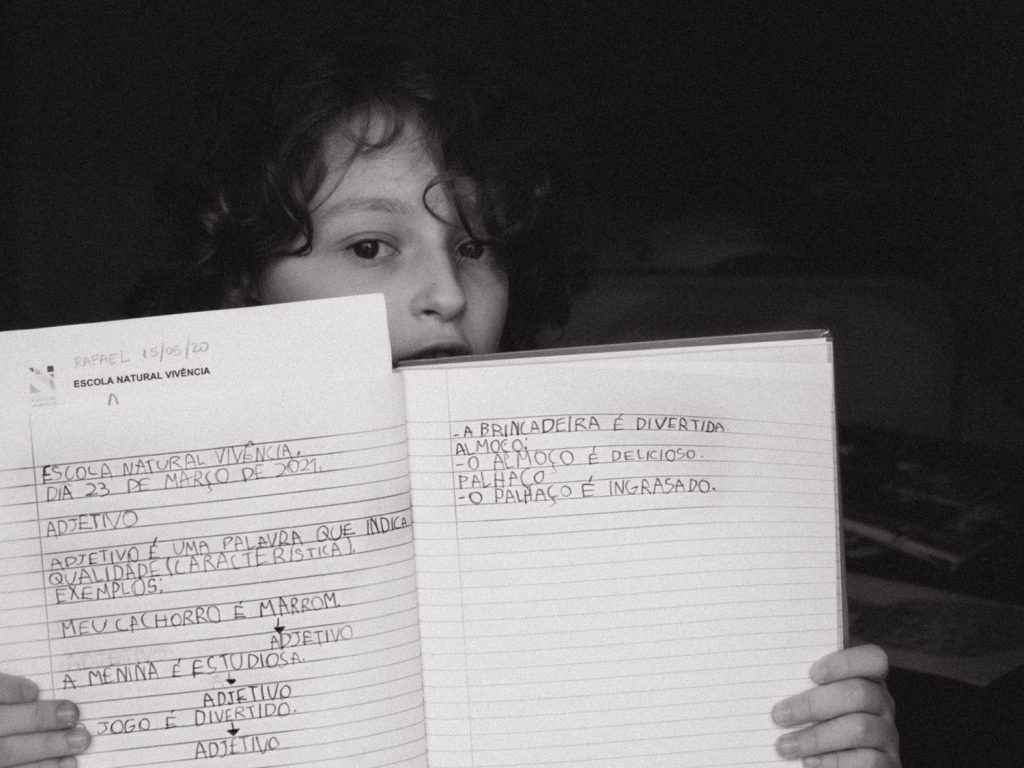 RAFAEL 15/05/20
ESCOLA NATURAL VIVÊNCIA
ESCOLA NATURAL VIVÊNCIA.
DIA 23 DE MARÇO DE 2021.
ADJETIVO
ADJETIVO É UMA PALAVRA QUE INDICA
QUALIDADE (CARACTERÍSTICA).
EXEMPLOS:
MEU CACHORRO É MARROM.
ADJETIVO
A MENINA É ESTUDIOSA.
ADJETIVO
O JOGO É DIVERTIDO.
ADJETIVO
-A BRINCADEIRA É DIVERTIDA
ALMOÇO:
-O ALMOÇO É DELICIOSO.
PALHAÇO
-O PALHAÇO É INGRASADO.